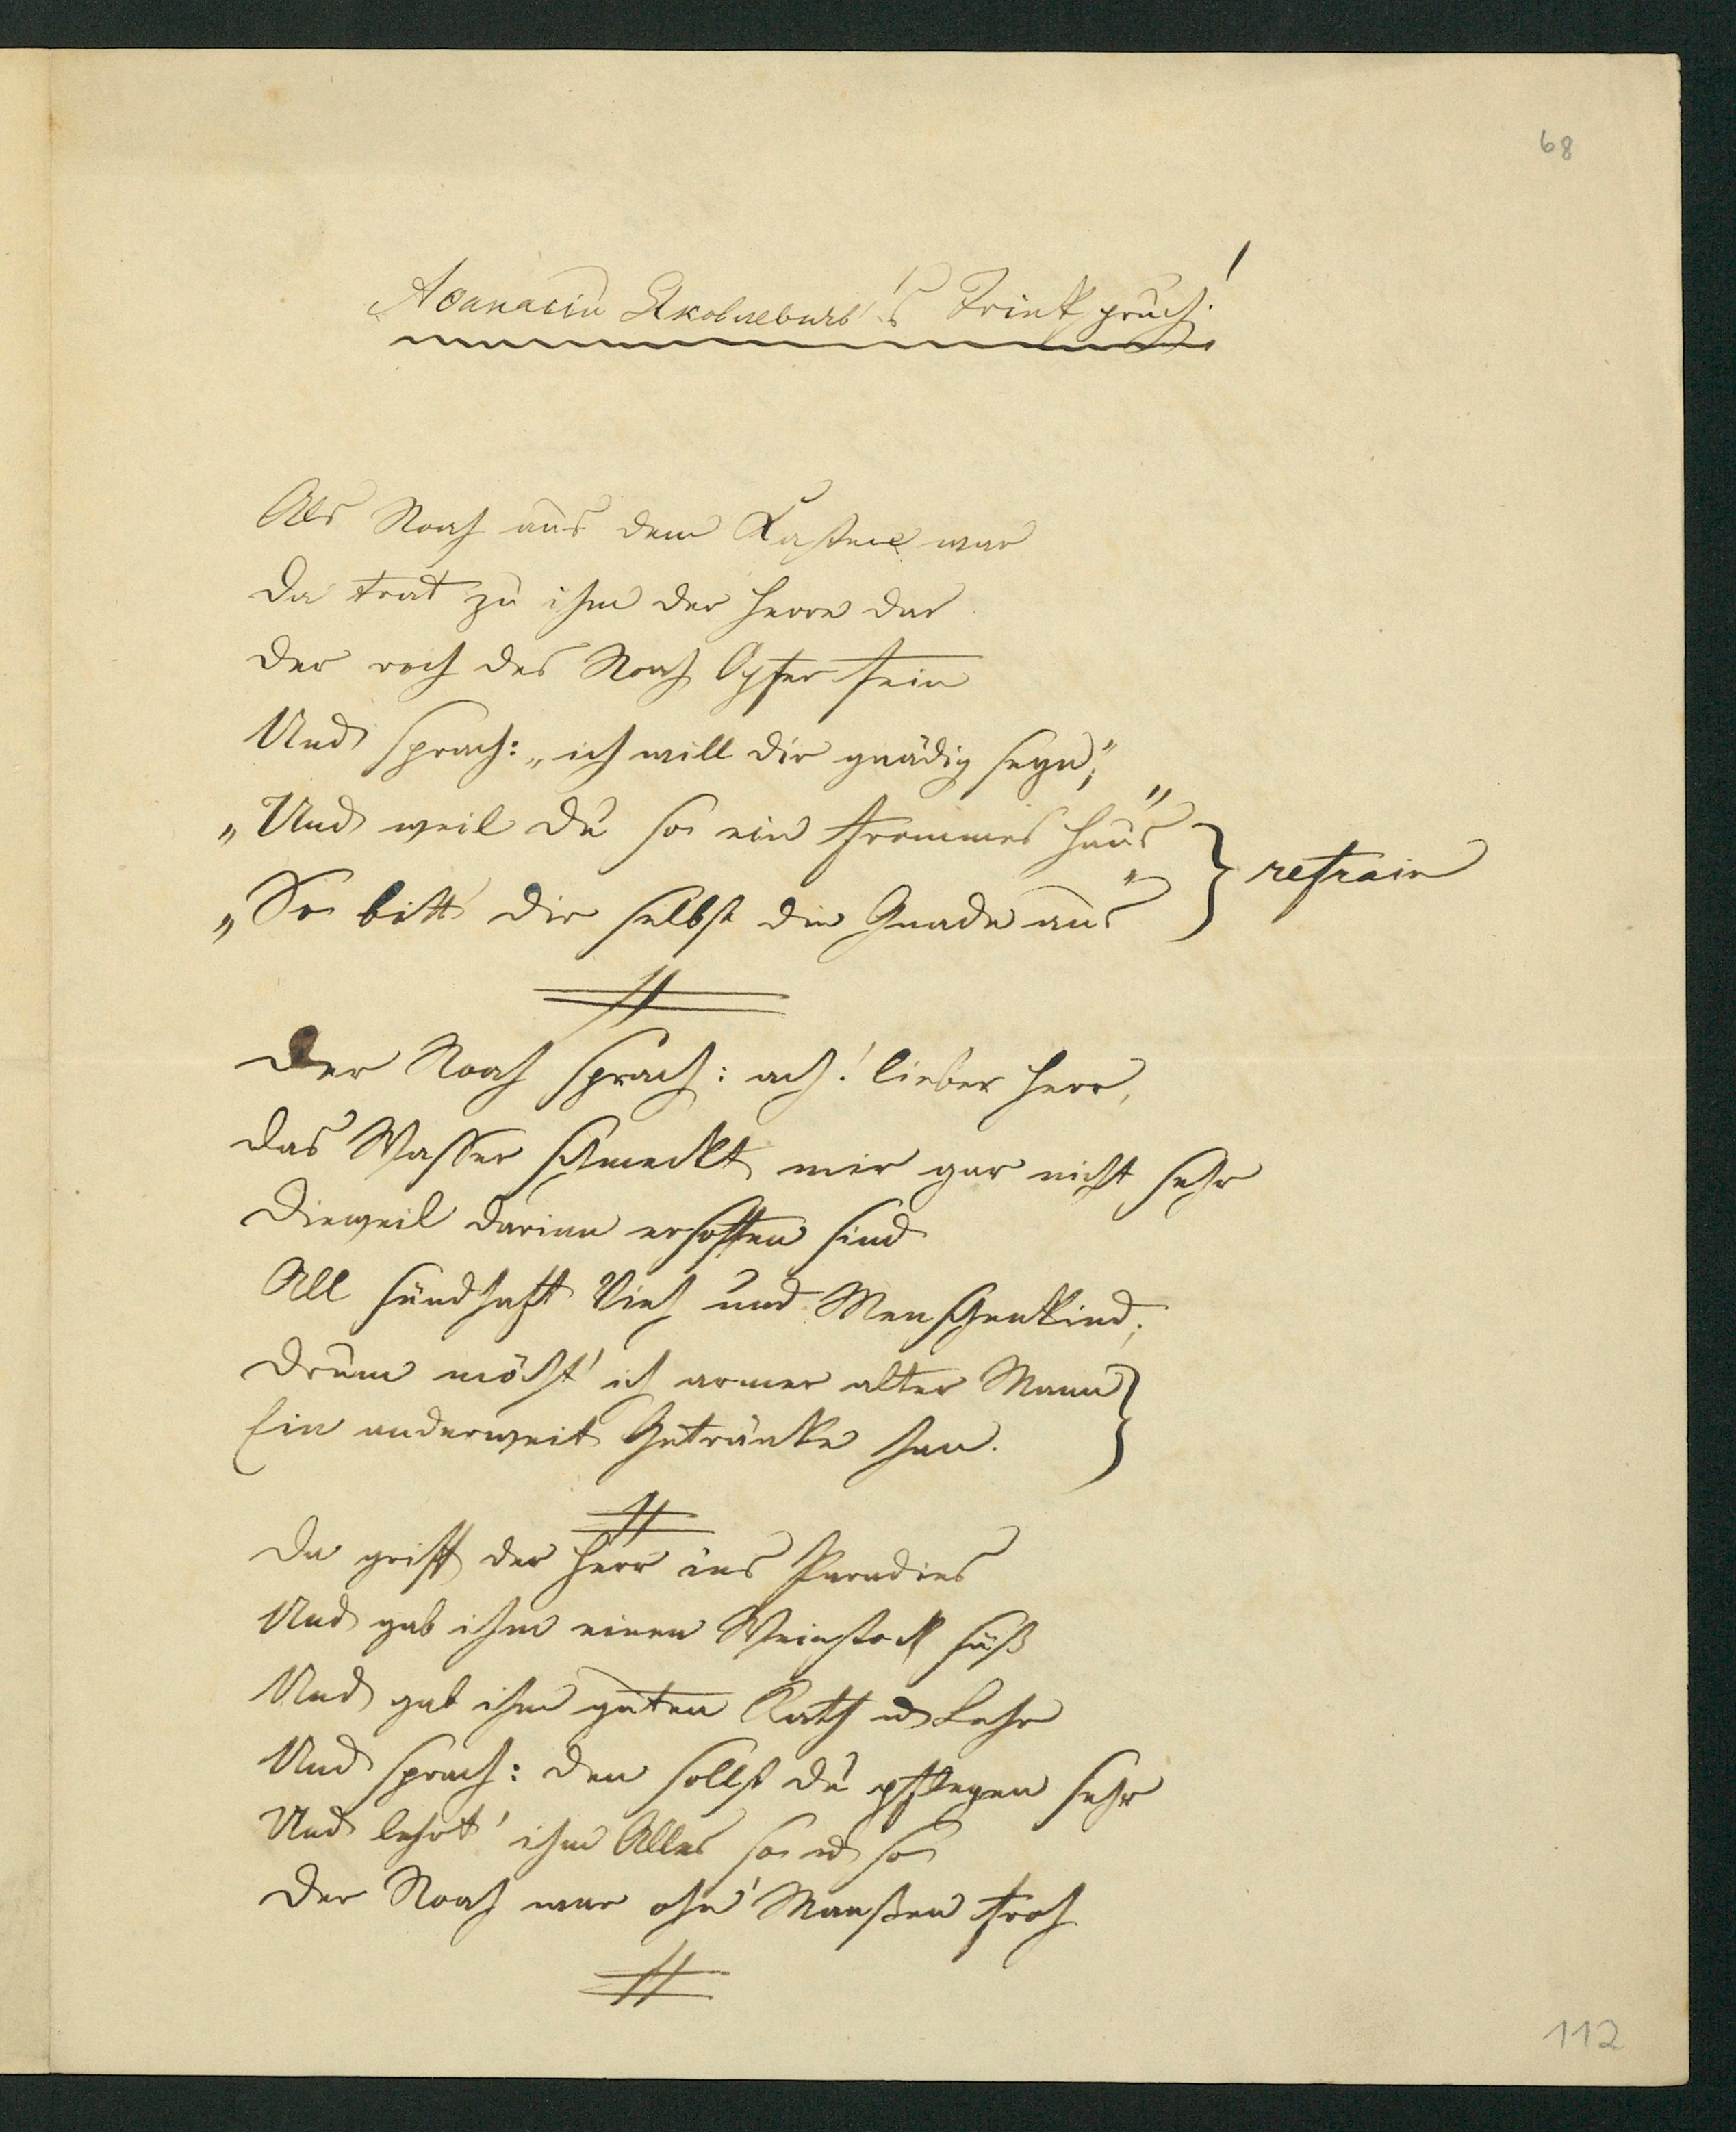 68
Аѳанасій Яковлевичь's Trinkspruch!
Als Noah aus dem Kasten war
Da trat zu ihm der Herre dar
Der roch des Noah Opfer fein
Und sprach: „ich will dir gnädig seyn;“
„Und weil du so ein frommes Haus“
„So bitt' dir selbst die Gnade aus“
refrain
Der Noah sprach: ach! lieber Herr,
Das Wasser schmeckt mir gar nicht sehr
Dieweil darinn ersoffen sind
All sündhaft Vieh und Menschenkind;
Drum möcht' ich armer alter Mann
Ein anderweit Getränke han.
Da griff der Herr ins Paradies
Und gab ihm einen Weinstock süß
Und gab ihm guten Rath u Lehr
Und sprach: den sollst du pflegen sehr
Und lehrt' ihm Alles so u so
Der Noah war ohn' Maaßen froh
112